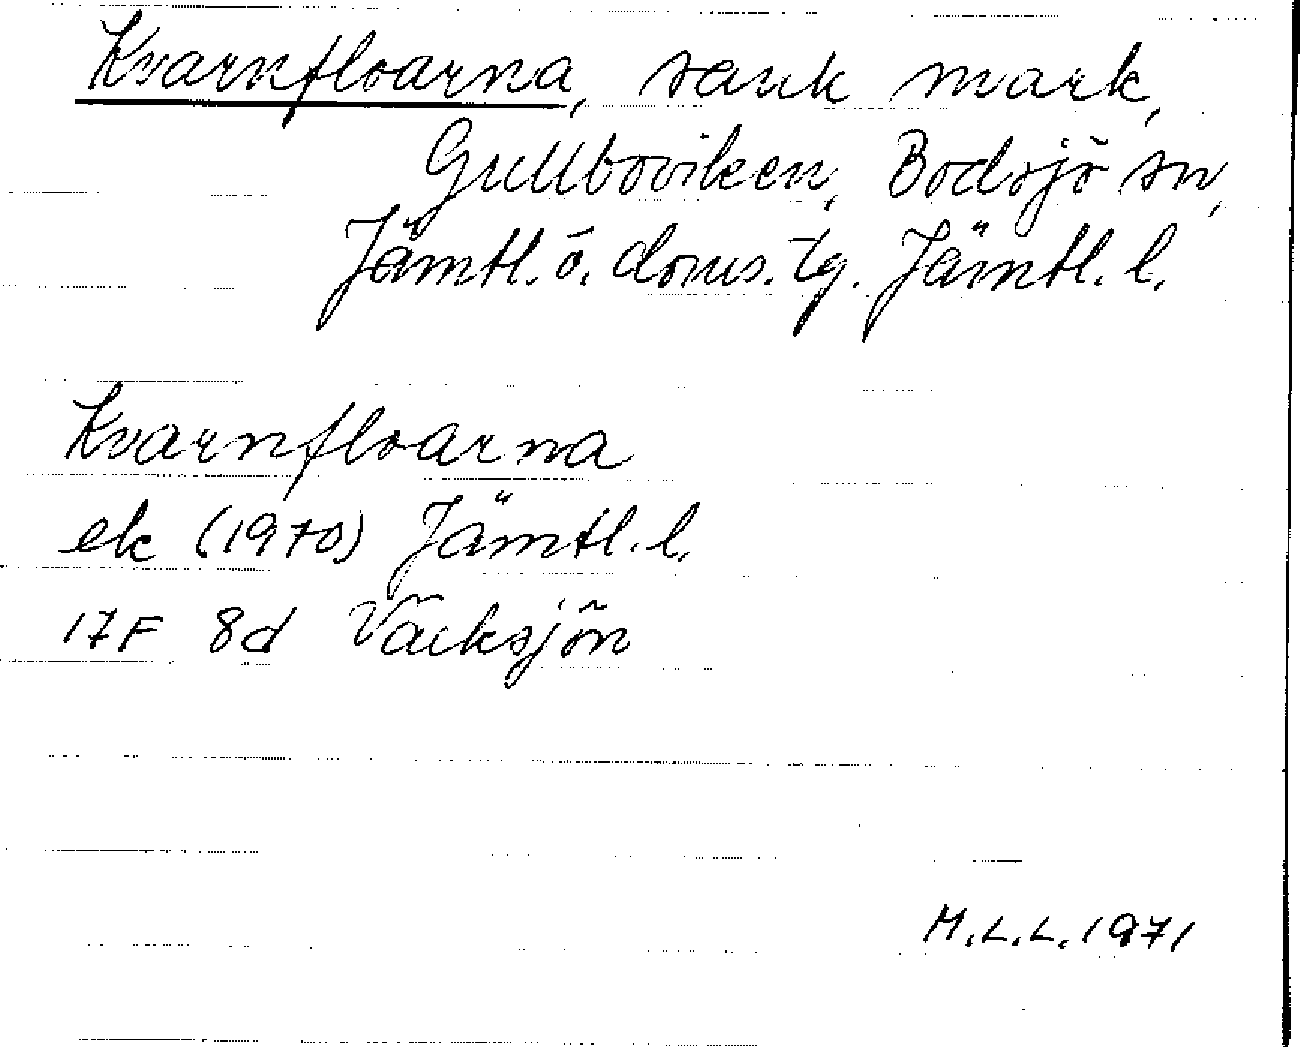 Kvarnfloarna, sank mark,
Gullboviken, Bodsjö sn,
Jämtl. ö. doms. tg. Jämtl. l.
Kvarnfloarna
ek (1970) Jämtl. l.
17F 8d Väcksjön
M.L.L. 1971